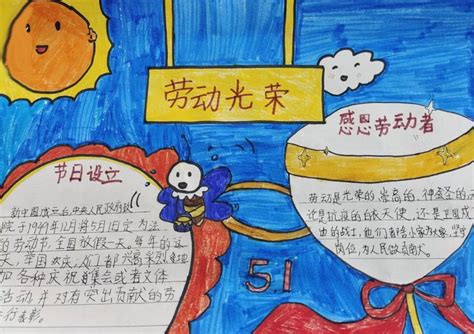 劳动光荣
感恩劳动者
节日设立
新中国成立后,中央人民政府
院于1949年12月将5月1日定为法
的劳动节,全国放假一天。每年的这
天,举国欢庆,人们都兴高采烈地
加各种庆祝集会或者文体
活动并对有突出贡献的劳
行表彰。
劳动是光荣的崇高的,神圣的
还是抗疫的白衣天使,还是卫国
的战士,他们都舍小家为大家,坚守
岗位,为人民做贡献。
5.1